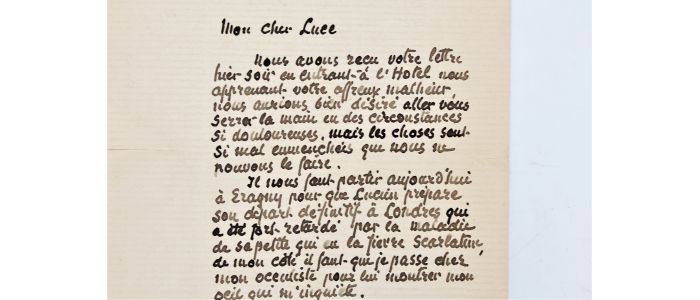 Mon cher Luce
Nous avons reçu votre lettre
hier soir en entrant à l'Hotel nous
apprenant votre affreux malheur,
nous aurions bien désiré aller vous
serrer la main en des circonstances
si douloureuses, mais les choses sont
si mal emmenchées que nous ne
pouvons le faire.
Il nous faut partir aujourd'hui
à Eragny pour que Lucien prépare
son départ définitif à Londres qui
a été fort retardé par la maladie
de sa petite qui eu la fievre scarlatine,
de mon côté il faut que je passe chez
mon occuliste pour lui montrer mon
oeil qui m'inquiète.